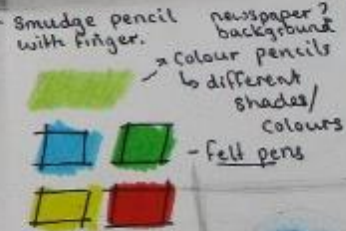 Smudge pencil
with finger.
newspaper?
background
Colour pencils
different
shades/
colours
- felt pens